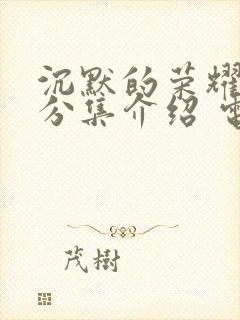 沉默的荣耀
分集介绍 电
茂樹